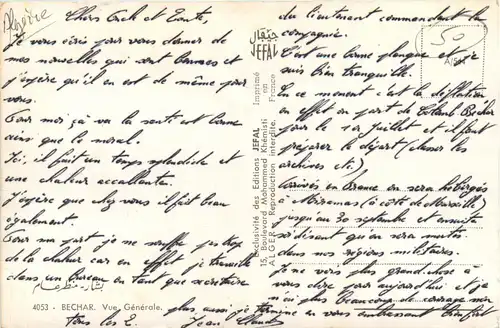 Algérie
Chers Oncle et Tante,
Je vous écris pour vous donner de
mes nouvelles qui sont bonnes et
j'espère qu'il en est de même pour
vous.
Pour moi ça va la santé est bonne
ainsi que le moral.
Ici, il fait un temps splendide et
une chaleur accablante.
J'espère que chez vous il fait beau
également.
Pour ma part je ne souffre pas trop
de la chaleur car en effet je travaille
dans un bureau en tant que secrétaire
بشار - منظر عام
4053 - BECHAR. Vue Générale.
جيفال
JEFAL
Imprimé en France
Exclusivité des Editions JEFAL
15, Boulevard Mohammed Khémisti
ALGER - Reproduction interdite.
50
A/50
du lieutenant commandant la
compagnie.
C'est une bonne planque et je
suis bien tranquille.
En ce moment c'est la
en effet on part de Colomb Béchar
pour le 1er juillet et il faut
préparer le départ (classer les
archives etc.)
Arrivés en France on sera hébergés
à Miramas (à côté de Marseille)
jusqu'au 30 septembre et ensuite
on sera mutés
dans nos régions militaires.
Je ne vois plus grand-chose à
vous dire pour aujourd'hui et je
n'ai plus beaucoup de courage non
plus aussi je termine en vous embrassant bien fort
tous les 2. Jean Claude